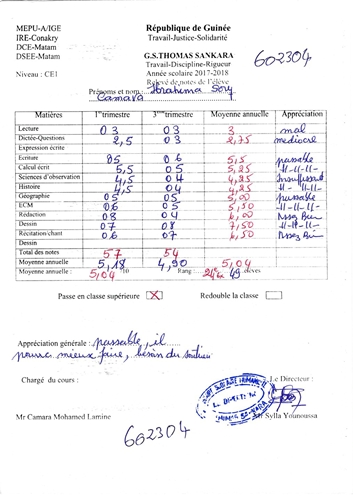 MEPU-A/IGE République de Guinée
IRE-Conakry Travail-Justice-Solidarité
DCE-Matam
DSEE-Matam G.S.THOMAS SANKARA
Travail-Discipline-Rigueur
Niveau : CE1 Année scolaire 2017-2018
602304
Relevé de notes de l'élève
Prénoms et nom Ibrahima Sory
Camara
Matières 1er trimestre 3ème trimestre Moyenne annuelle Appréciation
Lecture 03 03 3 mal
Dictée-Questions 2,5 03 2,75 mediocre
Expression écrite
Ecriture 05 06 5,5 passable
Calcul écrit 5,5 05 5,25 -II-II-
Sciences d'observation 4,5 04 4,25 Insuffisant
Histoire 4,5 04 4,25 -II-II-
Géographie 05 05 5,00 passable
ECM 06 05 5,50 -II-II-
Rédaction 08 04 6,00 Assez Bien
Dessin 07 08 7,50 -II-II-
Récitation/chant 06 07 6,50 Assez Bien
Dessin
Total des notes 57 54
Moyenne annuelle 5,18 4,90 5,04
Moyenne annuelle : 5,04 /10 Rang : 24e 49 élèves
Passe en classe supérieure X Redouble la classe
Appréciation générale : passable, il
pourra mieux faire, besoin du soutien
Chargé du cours : Le Directeur :
Mr Camara Mohamed Lamine Mr Sylla Younoussa
602304